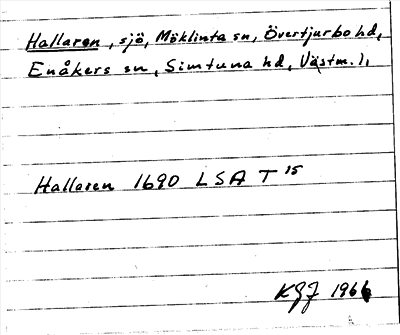 Hallaren, sjö, Möklinta sn, Övertjurbo hd,
Enåkers sn, Simtuna hd, Västm. l,
Hallaren 1690 LSA T 15
KGJ 1966